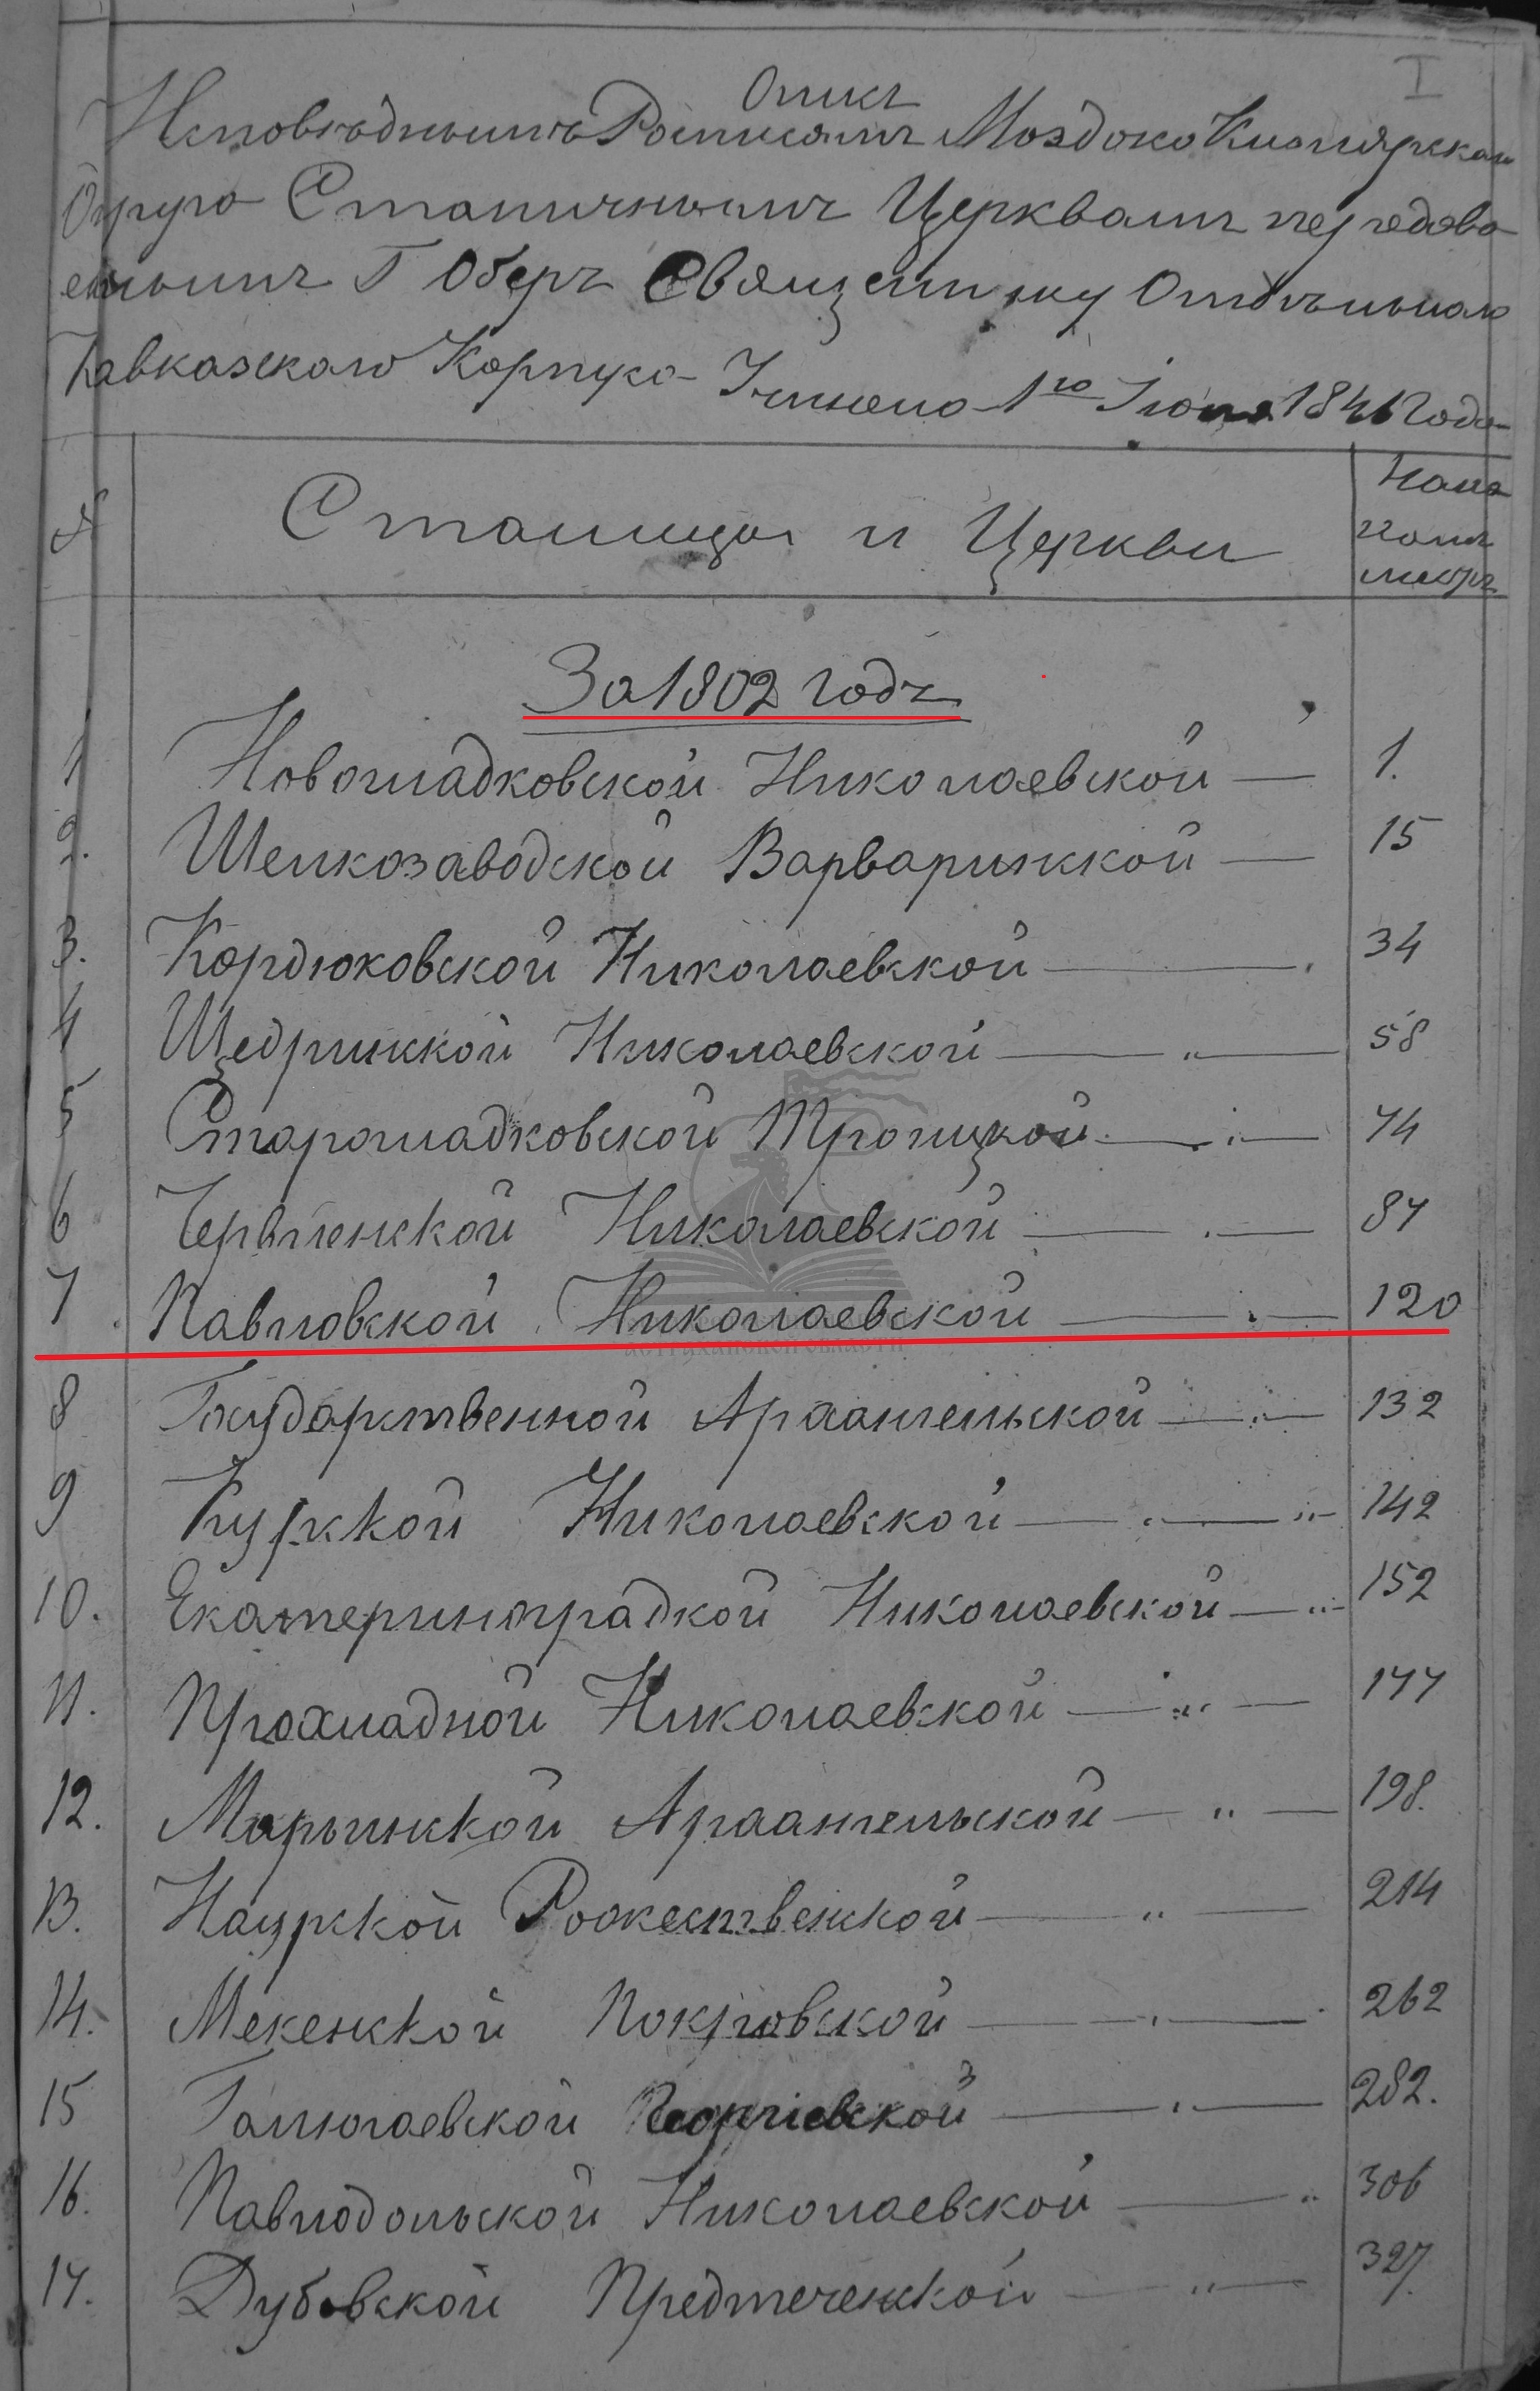 I
Опись
Исповѣднымъ Росписямъ Моздоко Кизлярскаго
Округа Станичнымъ Церквамъ передава
емымъ Г Оберъ Священнику Отдѣльнаго
Кавказскаго Корпуса Учинена 1го Іюня 1846 Года
№ Станицы и Церкви На ко
комъ
листѣ
За 1802 годъ
1 Новогладковской Николаевской — 1.
2. Шелкозаводской Варваринской — 15
3. Кордюковской Николаевской — 34
4 Щедринской Николаевской — „ — 58
5 Старогладковской Троицкой — „ — 74
6 Червленской Николаевской — „ — 87
7 Павловской Николаевской — „ — 120
8 Государственной Архангельской — „ — 132
9 Курской Николаевской — „ — „ 142
10. Екатериноградской Николаевской — „ 152
11. Прохладной Николаевской — „ — 177
12. Марьинской Архангельской — „ — 198.
13. Наурской Рожественской — „ — 214
14. Мекенской Покровской — „ — 262
15 Галюгаевской Георгіевской — „ — 282.
16. Павлодольской Николаевской — „ 306
17. Дубовской Предтеченской — „ — 327.
астраханской области